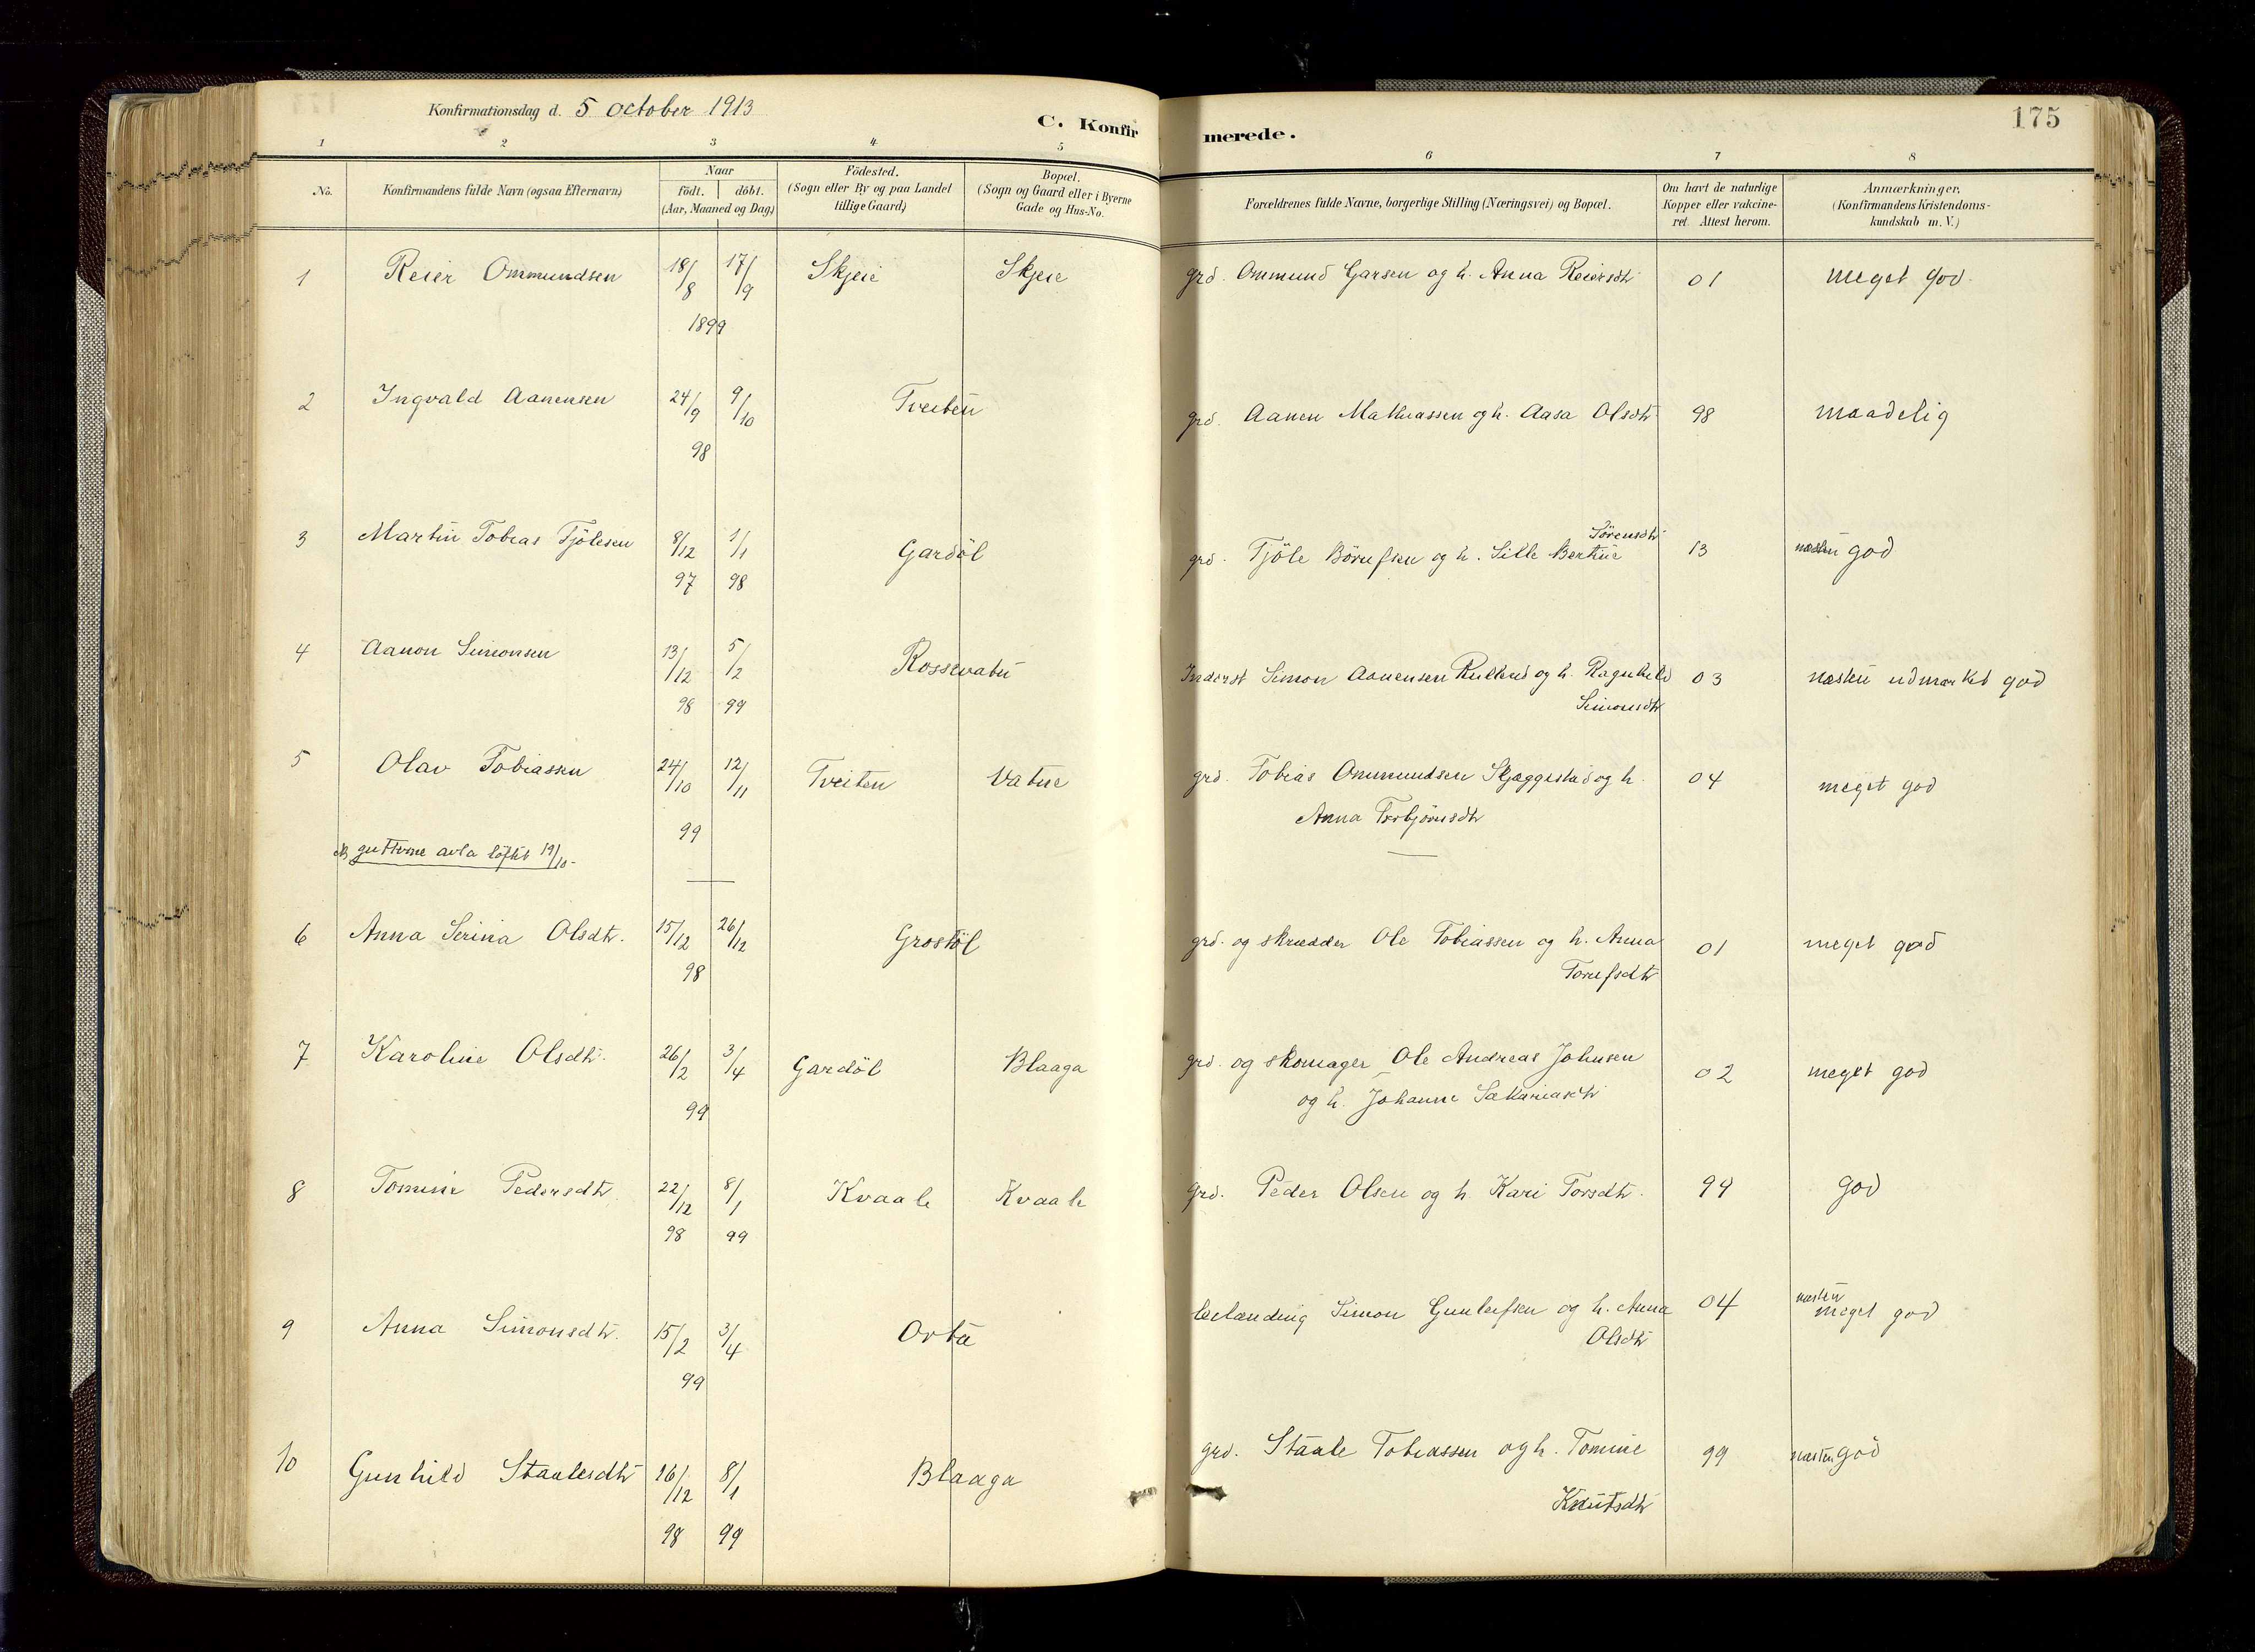 Konfirmationsdag d. 5 october 1913
C. Konfirmerede.
175
1 2 3 4 5 6 7 8
No.
Konfirmandens fulde Navn (ogsaa Efternavn)
Naar
födt. döbt.
(Aar, Maaned og Dag)
Födested.
(Sogn eller By og paa Landet
tillige Gaard)
Bopæl.
(Sogn og Gaard eller i Byerne
Gade og Hus-No.
Forældrenes fulde Navne, borgerlige Stilling (Næringsvei) og Bopæl.
Om havt de naturlige
Kopper eller vakcine-
ret. Attest herom.
Anmærkninger.
(Konfirmandens Kristendoms-
kundskab m. V.)
1 Reier Ommundsen 18/8 17/9 Skjeie Skjeie grd. Ommund Garsen og h. Anna Reiersdtr 01 meget god
1899
2 Ingvald Aanensen 24/9 9/10 Tveiten grd. Aanen Mathiassen og h. Aasa Olsdtr 98 maadelig
98
Sörensdtr
3 Martin Tobias Tjölesen 8/12 1/1 Gardöl grd. Tjöle Börufsen og h. Sille Bertine 13 næsten god
97 98
4 Aanon Simonsen 13/12 5/2 Rossevatn Inderst Simon Aanensen og h. Ragnhild 03 næsten udmærket god
98 99 Simonsdtr
5 Olav Tobiassen 24/10 12/11 Tveiten Vatne grd. Tobias Ommundsen Skjæggestad og h. 04 meget god
99 Anna Torbjörnsdtr
NB gutterne avla löftet 19/10-
6 Anna Serina Olsdtr. 15/12 26/12 Grostöl grd. og skrædder Ole Tobiassen og h. Anna 01 meget god
98 Torufsdtr
7 Karoline Olsdtr. 26/2 3/4 Gardöl Blaaga grd. og skomager Ole Andreas Johnsen 02 meget god
99 og h. Johanne Sakariasdtr
8 Tomine Pedersdtr 22/12 8/1 Kvaale Kvaale grd. Peder Olsen og h. Kari Torsdtr. 99 god
98 99
næsten
9 Anna Simonsdtr. 15/2 3/4 Ortu leilænding Simon Gunleifsen og h. Anna 04 meget god
99 Olsdtr
10 Gunhild Staalesdtr 16/12 8/1 Blaaga grd. Staale Tobiassen og h. Tomine 99 næsten god
98 99 Knutsdtr